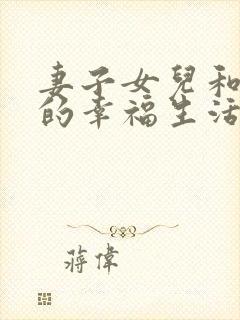 妻子女兒和
的幸福生活
蔣偉